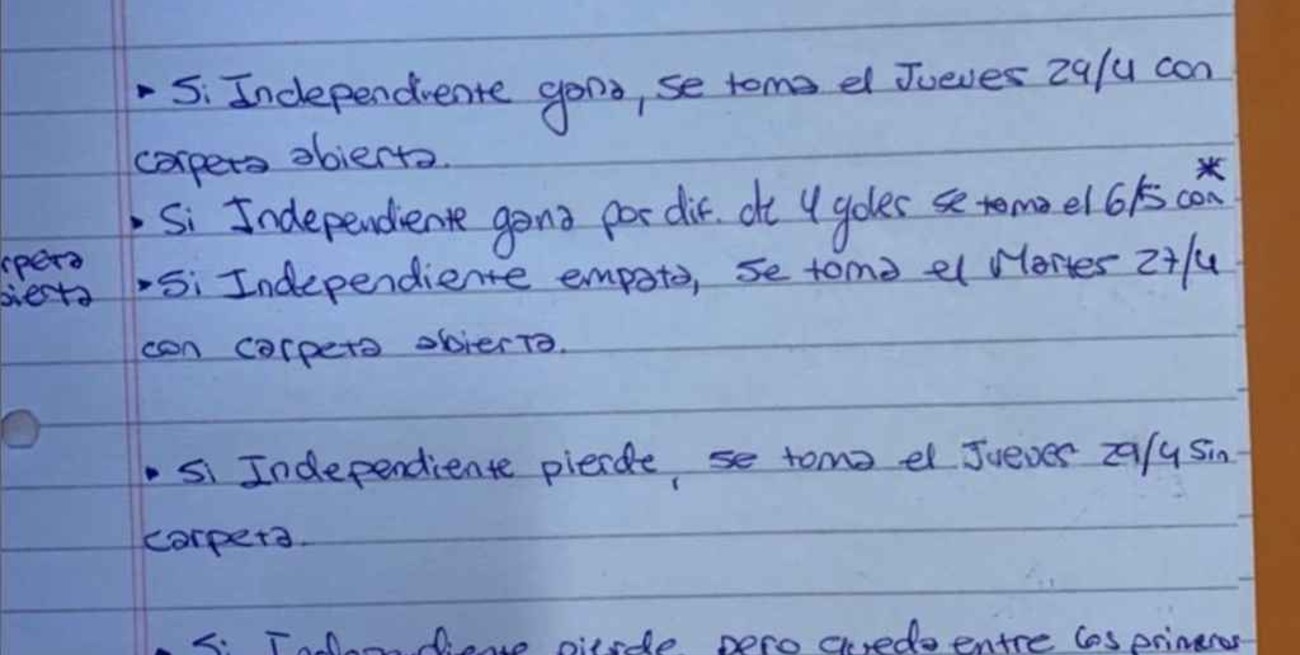 ▸ Si Independiente gana, se toma el Jueves 29/4 con
carpeta abierta.
*
• Si Independiente gana por dif. de 4 goles se toma el 6/5 con
rpeta
▸ Si Independiente empata, se toma el Martes 27/4
bierta
con carpeta abierta.
• Si Independiente pierde, se toma el Jueves 29/4 sin
carpeta.
• Si Independiente pierde pero queda entre los primeros